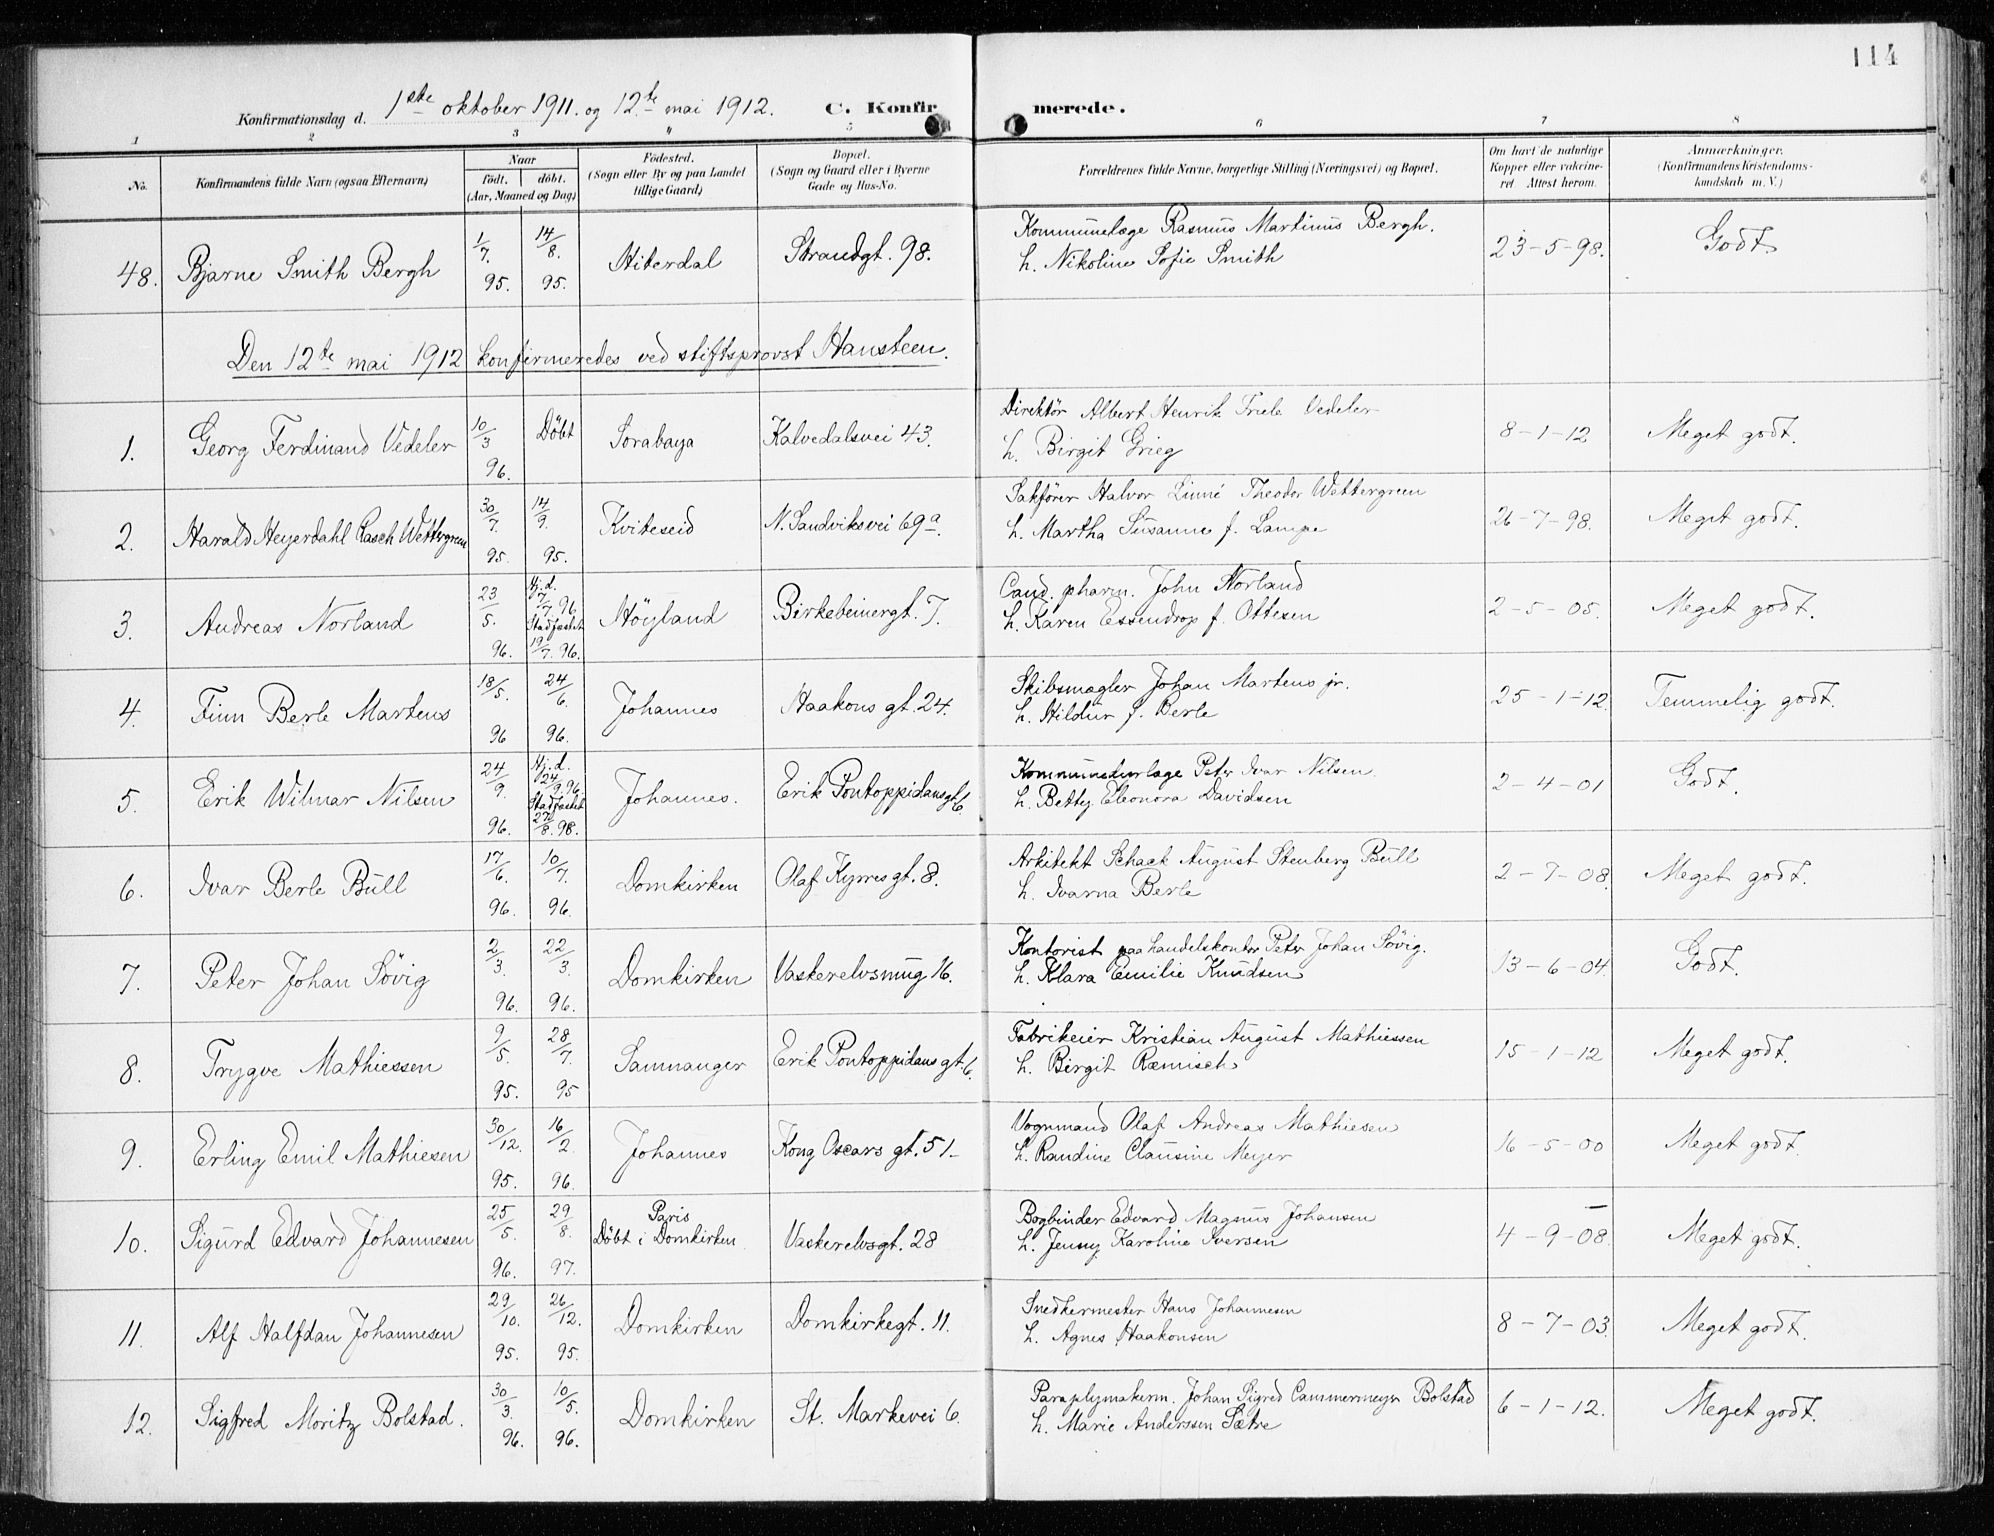 114
Konfirmationsdag d. 1ste oktober 1911. og 12te mai 1912. C. Konfirmerede.
1 2 3 " 5 6 7 8
No. Konfirmandens fulde Navn (ogsaa Efternavn) Naar födt. döbt. (Aar, Maaned og Dag) Födested. (Sogn eller By og paa Landet tillige Gaard) Bopæl. (Sogn og Gaard eller i Byerne Gade og Hus-No. Forældrenes fulde Navne, borgerlige Stilling (Næringsvei) og Bopæl. Om havt de naturlige Kopper eller vakcineret Attest herom. Anmærkninger. (Konfirmandens Kristendomskundskab m. V.)
48. Bjarne Smith Bergh 1/7. 95. 14/8. 95. Hiterdal Strandgt. 98. Kommunelæge Rasmus Martinus Bergh. 23-5-98. Godt
h. Nikoline Sofie Smith
Den 12te mai 1912 konfirmeredes ved stiftsprovst Hansteen.
1. Georg Ferdinand Vedeler 10/3 96. Döbt Sorabaya Kalvedalsvei 43. Direktör Albert Henrik Friele Vedeler 8-1-12 Meget godt.
h. Birgit Grieg
2. Harald Heyerdahl Rasch Wettergreen 30/7. 95. 14/9. 95. Kviteseid N. Sandviksvei 69a. Sakförer Halvor Linné Theodor Wettergreen 26-7-98. Meget godt.
h. Martha Susanne f. Lampe
3. Andreas Norland 23/5. 96. Hj.d. 7/7 96 Stadfæstet 19/7. 96. Höyland Birkebeinergt. 7. Cand. pharm. John Norland 2-5-05. Meget godt.
h. Karen Essendrop f. Ottesen
4. Finn Berle Martens 18/5. 96 24/6. 96. Johannes Haakons gt. 24. Skibsmægler Johan Martens jr. 25-1-12. Temmelig godt.
h. Hildur f. Berle
5. Erik Wilmar Nilsen 24/9. 96. Hj.d. 24/9. 96. Stadfæstet 27/8. 98. Johannes. Erik Pontoppidansgt 6. Kommunedyrlæge Peter Ivar Nilsen. 2-4-01 Godt.
h. Betty Eleonora Davidsen
6. Ivar Berle Bull 17/6. 96. 10/7. 96. Domkirken Olaf Kyrres gt. 8. Arkitekt Schack August Stenberg Bull 2-7-08. Meget godt.
h. Ivarna Berle
7. Peter Johan Sövig 2/3. 96. 22/3. 96. Domkirken Vaskerelvsmug 16. Kontorist paa handelskontor Peter Johan Sövig. 13-6-04. Godt.
h. Klara Emilie Knudsen
8. Trygve Mathiessen 9/5. 95. 28/7. 95 Samnanger Erik Pontoppidans gt. 6. Fabrikeier Kristian August Mathiessen 15-1-12 Meget godt.
h. BirgitRæmisch
9. Erling Emil Mathiesen 30/12. 95. 16/2. 96. Johannes Kong Oscars gt. 51- Vognmand Olaf Andreas Mathiesen 16-5-00 Meget godt.
h. Randine Clausine Meyer
10. Sigurd Edvard Johannesen 25/5. 96. 29/8. 97. Paris Döbt i Domkirken Vaskerelvsgt. 28 Bogbinder Edvard Magnus Johansen 4-9-08. Meget godt.
h. Jenny Karoline Iversen
11. Alf Halfdan Johannesen 29/10. 95. 26/12. 95. Domkirken Domkirkegt. 11. Snedkermester Hans Johannesen 8-7-03. Meget godt.
h. Agnes Haakonsen
12. Sigfred Moritz Bolstad. 30/3. 96. 10/5. 96. Domkirken St. Markevei 6. Paraplymakerm. Johan Sigred Cammermeyer Bolstad 6-1-12. Meget godt.
h. Marie Anderssen Sætre